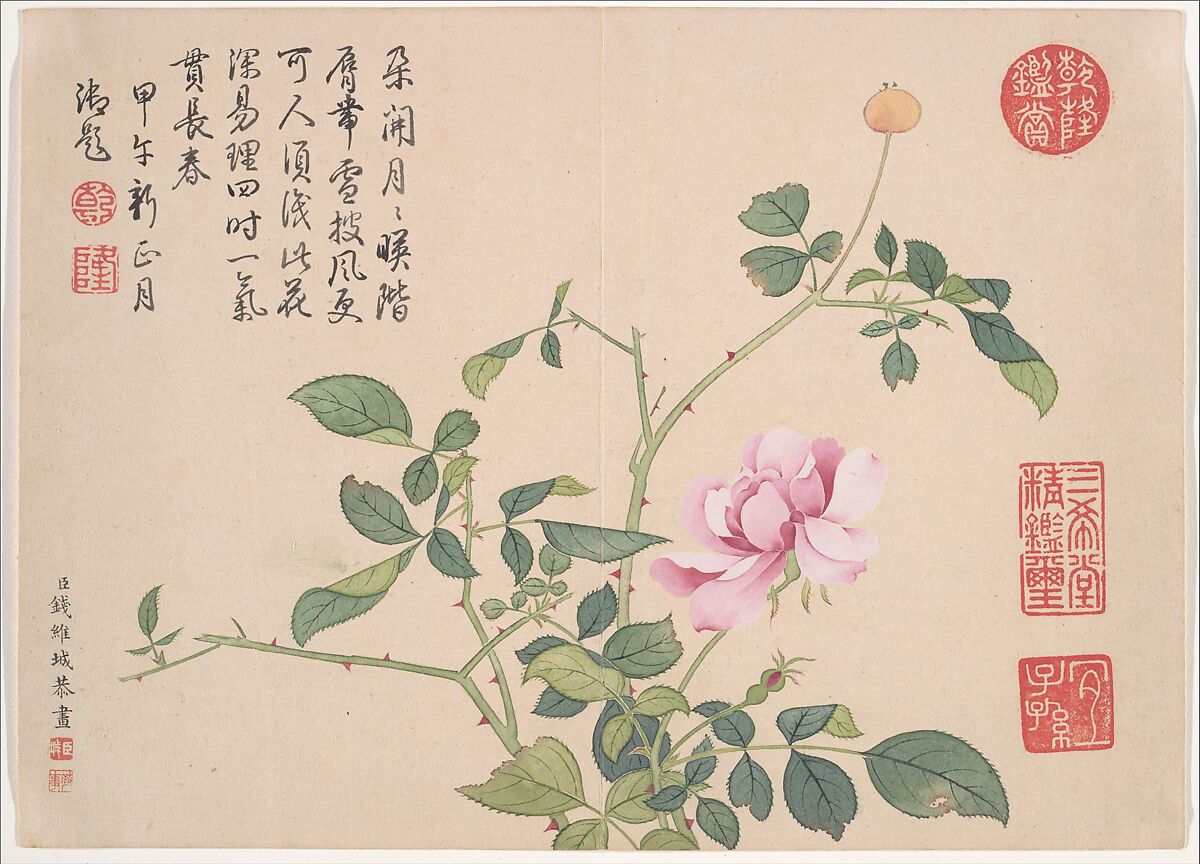 朵開月〻暎階
脣帶雪披風更
可人須識此花
深易理四时一氣
貫長春
甲午新正月
御題
乾
隆
臣錢維城恭畫
乾隆鑑賞
三希堂精鑑璽
宜子孫